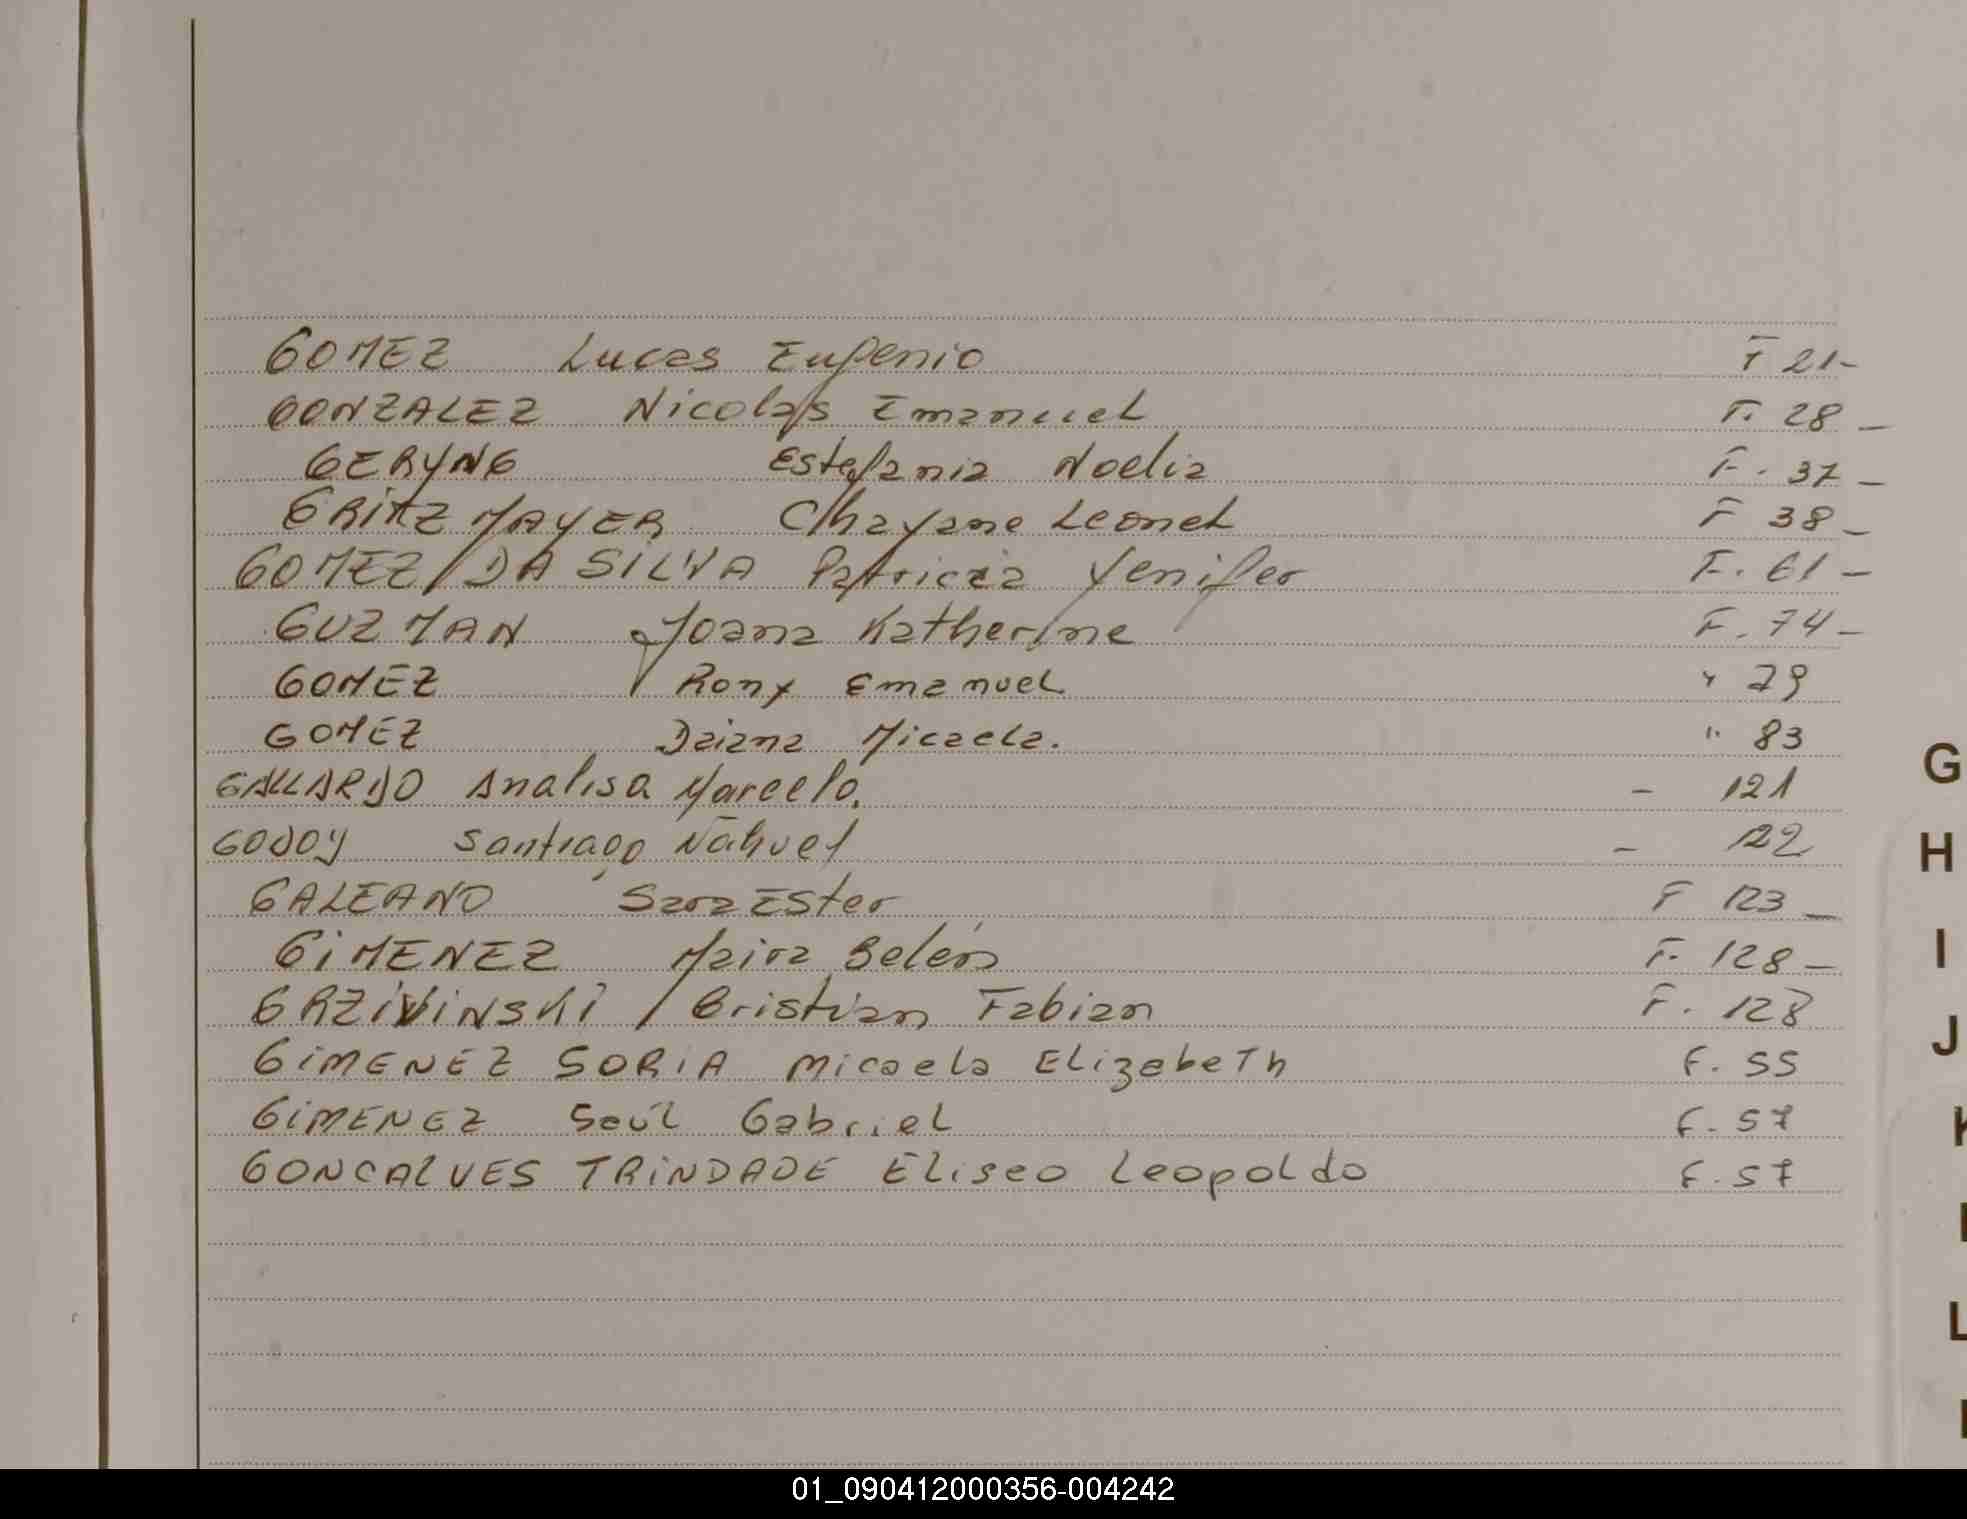 GOMEZ Lucas Eugenio F 21-
GONZALEZ Nicolas Emanuel F. 28 -
GERYNG Estefania Noelia F. 37 -
GRITZ MAYER Chayane Leonel F 38 -
GOMEZ DA SILVA Patricia Yenifer F. 61 -
GUZMAN Joana Katherine F. 74 -
GOMEZ Rony Emanuel " 79
GOMEZ Daiana Micaela. " 83
GALLARDO Analisa Marcelo. - 121
GODOY Santiago Nahuel - 122
GALEANO Sara Ester F 123 -
GiMENEZ Maira Belén F. 128 -
GRZiViNSKi Cristian Fabian F. 128
GiMENEZ SORiA Micaela ElizabeTh F. 55
GiMENEZ Saúl Gabriel F. 57
GONCALVES TRiNDADE Eliseo Leopoldo F. 57
G
H
I
J
K
L
01_090412000356-004242